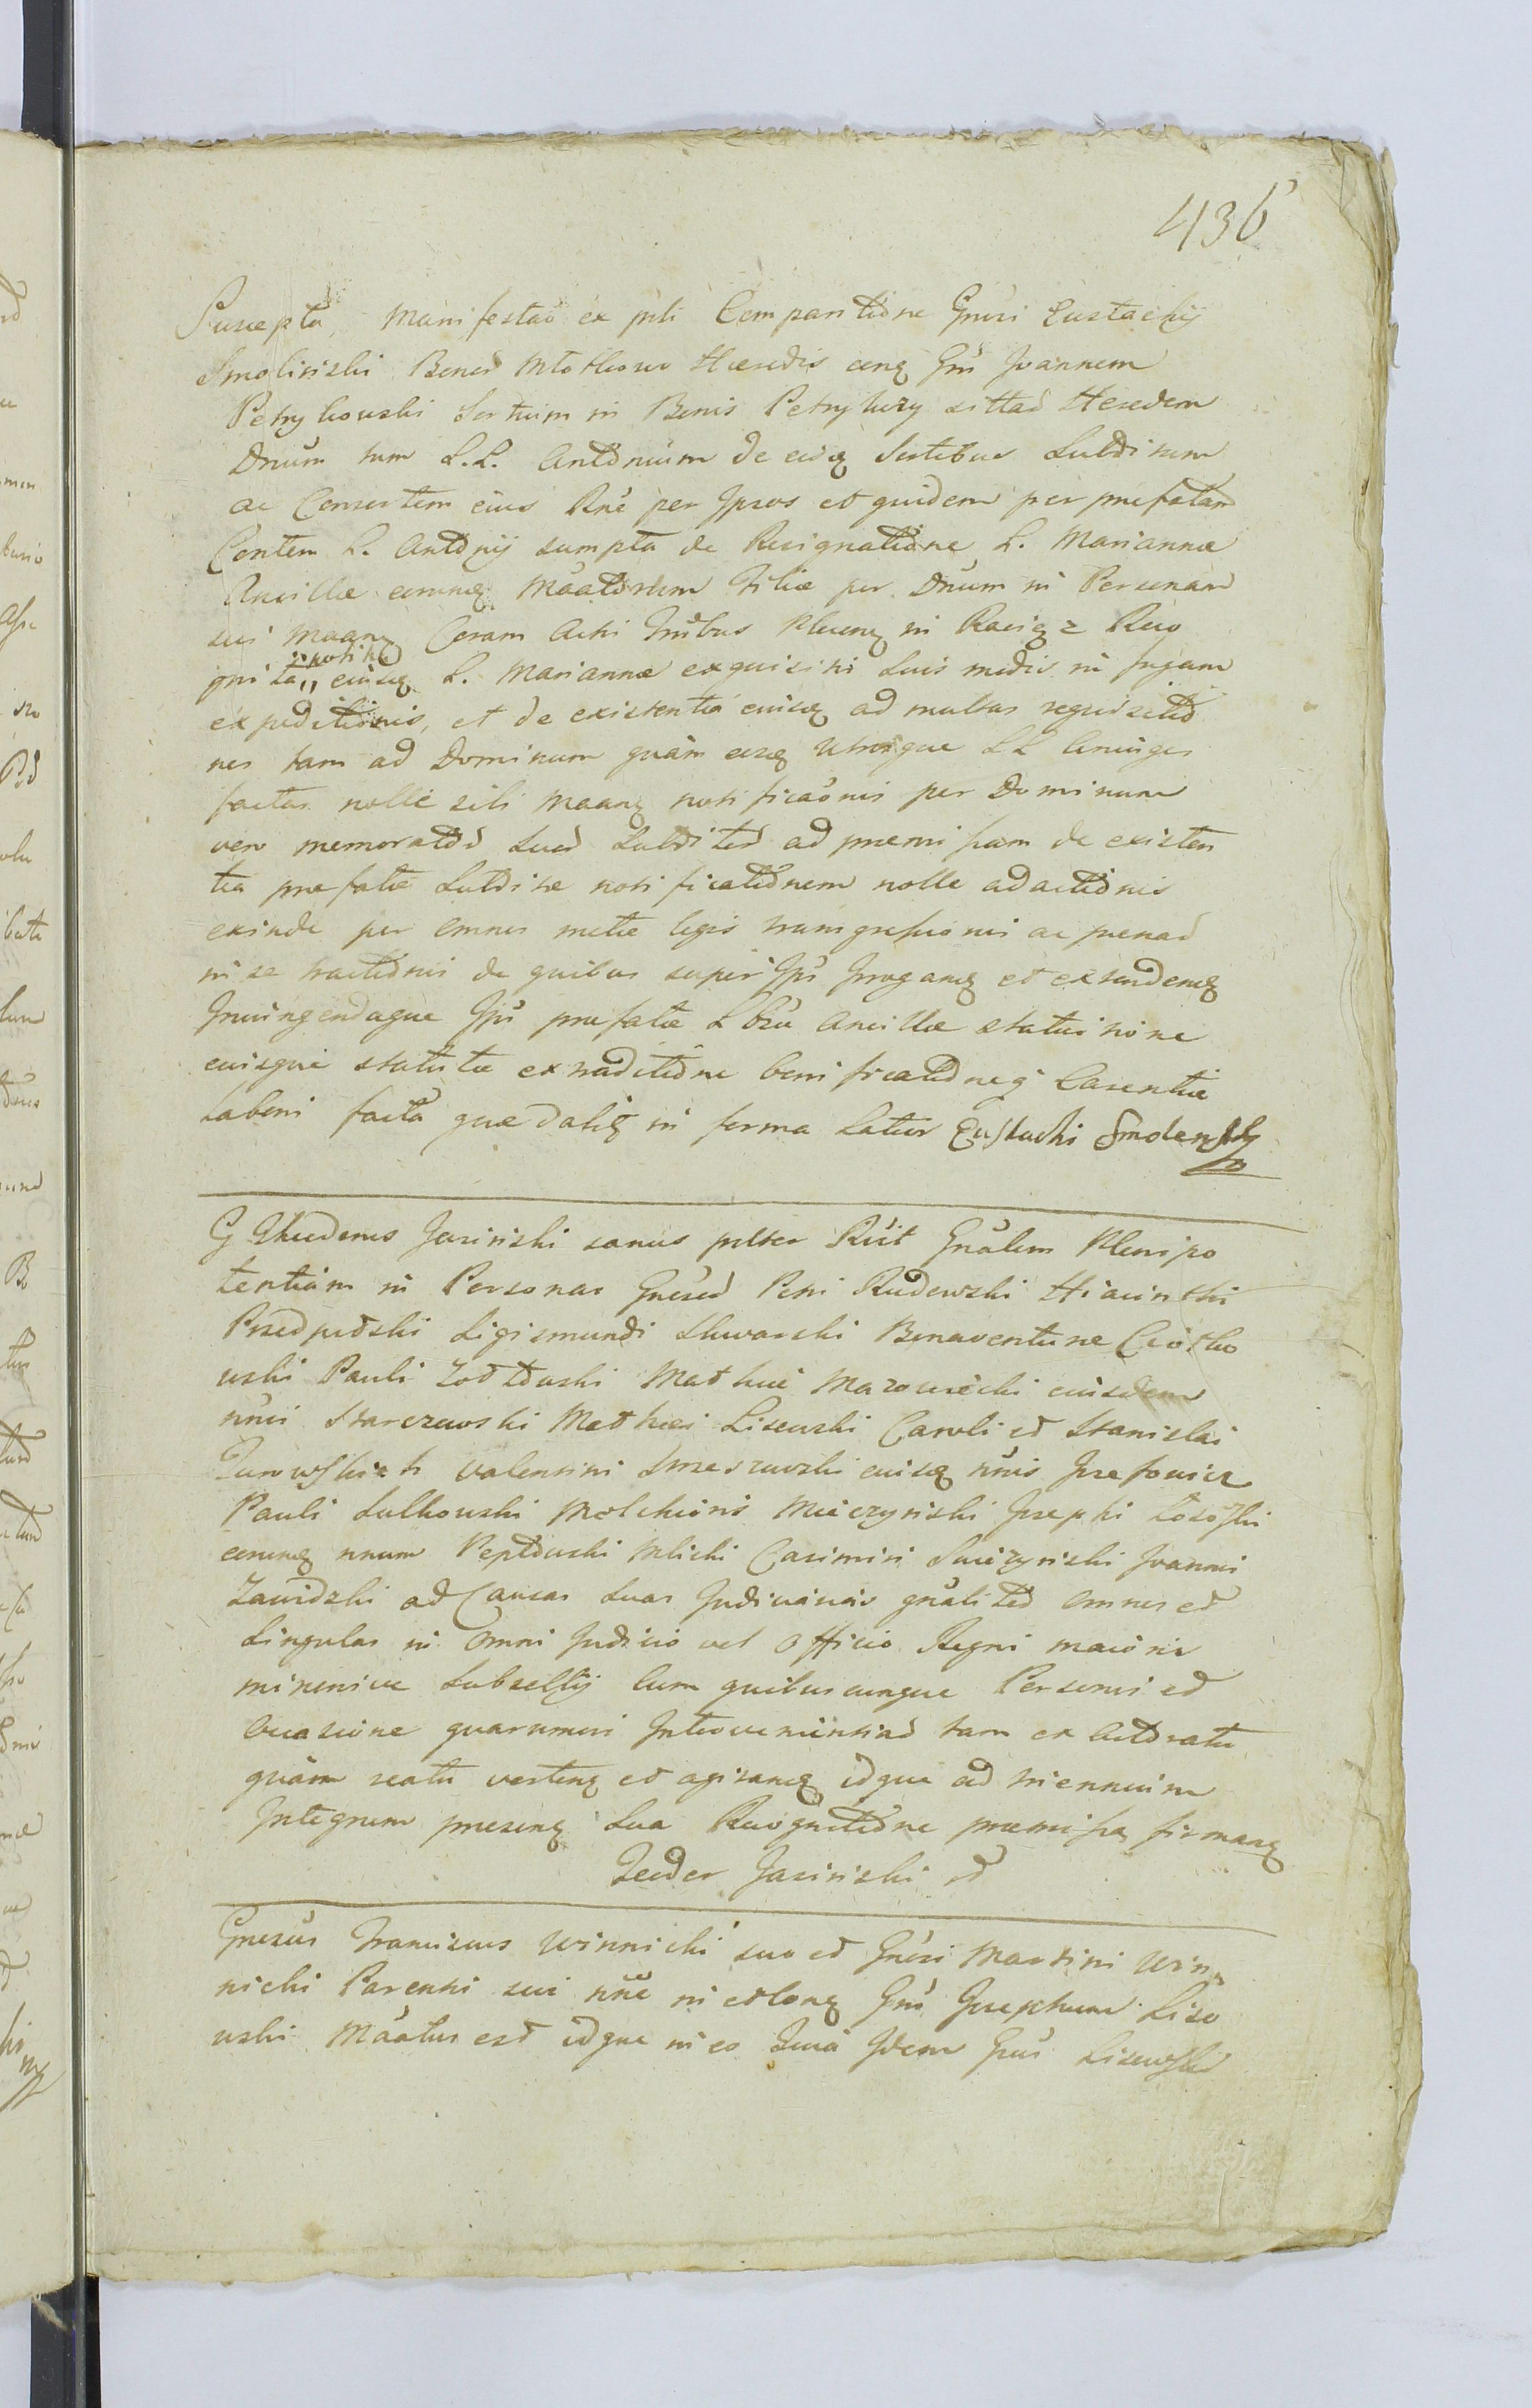 436
Suscepta Manifestaõ ex prli Comparitione Gnusi Eustachij
Smolinski Bonor Młotkowo Hæredis cong Gm Joannem
Petrykowski Sortium in Bonis Petrykozy sittar Heredem
Dnum tum L.L. Antonium de eisq Sortibus Subditum
ac Consortem eius Rne per Ipsos et quidem per præfatam
Contem L. Antonij sumpta de Resignatione L. Mariannæ
Ancillæ eorumq Maatorum Filiæ per Dnum in Personam
sui Maang Coram Actis Tribus Plocen in Raciąz Reco
notitia
gni ta,, eiusq L. Mariannæ exquisitis suis mediis in fugam
expeditionis, et de existentia eiusq ad multas requisitio
nes tam ad Dominum quàm eosq utrosque LL Coniuges
factas nolle sibi Maang notificaõnis per Dominum
vero memorator suor Subditor ad præmissam de existen
tia præfatæ Subditæ notificationem nolle adactionis
exinde per omnes metæ legis transgressionis ac poenar
in se tractionis de quibus super Ipsis Irrogang et extendeng
Iniungendaque Ipsis præfatæ Lbsæ Ancillæ statuitione
eiusque statutæ extraditione benificationeq Carentiæ
Laboris facta quæ dabit in forma latior Eustachi Smolenski
G Theodorus Jasinski sanus prlter Rcit Gnalem Plenipo
tentiam in Personas Gnesor Petri Rudowski Hiacinthi
Przedpełski Sigismundi Skwarski Bonaventuræ Ciołko
wski Pauli Zołtowski Mathæi Mazowiecki eiusdem
nnis Starczewski Mathæi Lisewski Caroli et Stanislai
Turowskich Valentini Smarzewski eiusq nnis Jozefowicz
Pauli Sulkowski Melchioris Mieczynski Josephi Łososki
eorumq nnum Peptowski Mlicki Casimiri Swiezynski Joannis
Zawidzki ad Causas suas Judiciarias gnaliter omnes et
Singulas in omni Judicio vel Officio Regni maioris
minorisve Subsellij cum quibuscunque Personis et
Occasione quarumvis Intervenientiar tam ex Actoratu
quàm reatu verteng et agitang idque ad triennium
Integrum preseng sua Recognitione præmissa firmang
Teodor Jasinski
Gnesus Franciscus Winnicki suo et Gnesi Martini Win
nicki Parentis sui nne in et cong Gm Josephum Liso
wski Maatus est idque in eo Quia Idem Gnus Lisewski